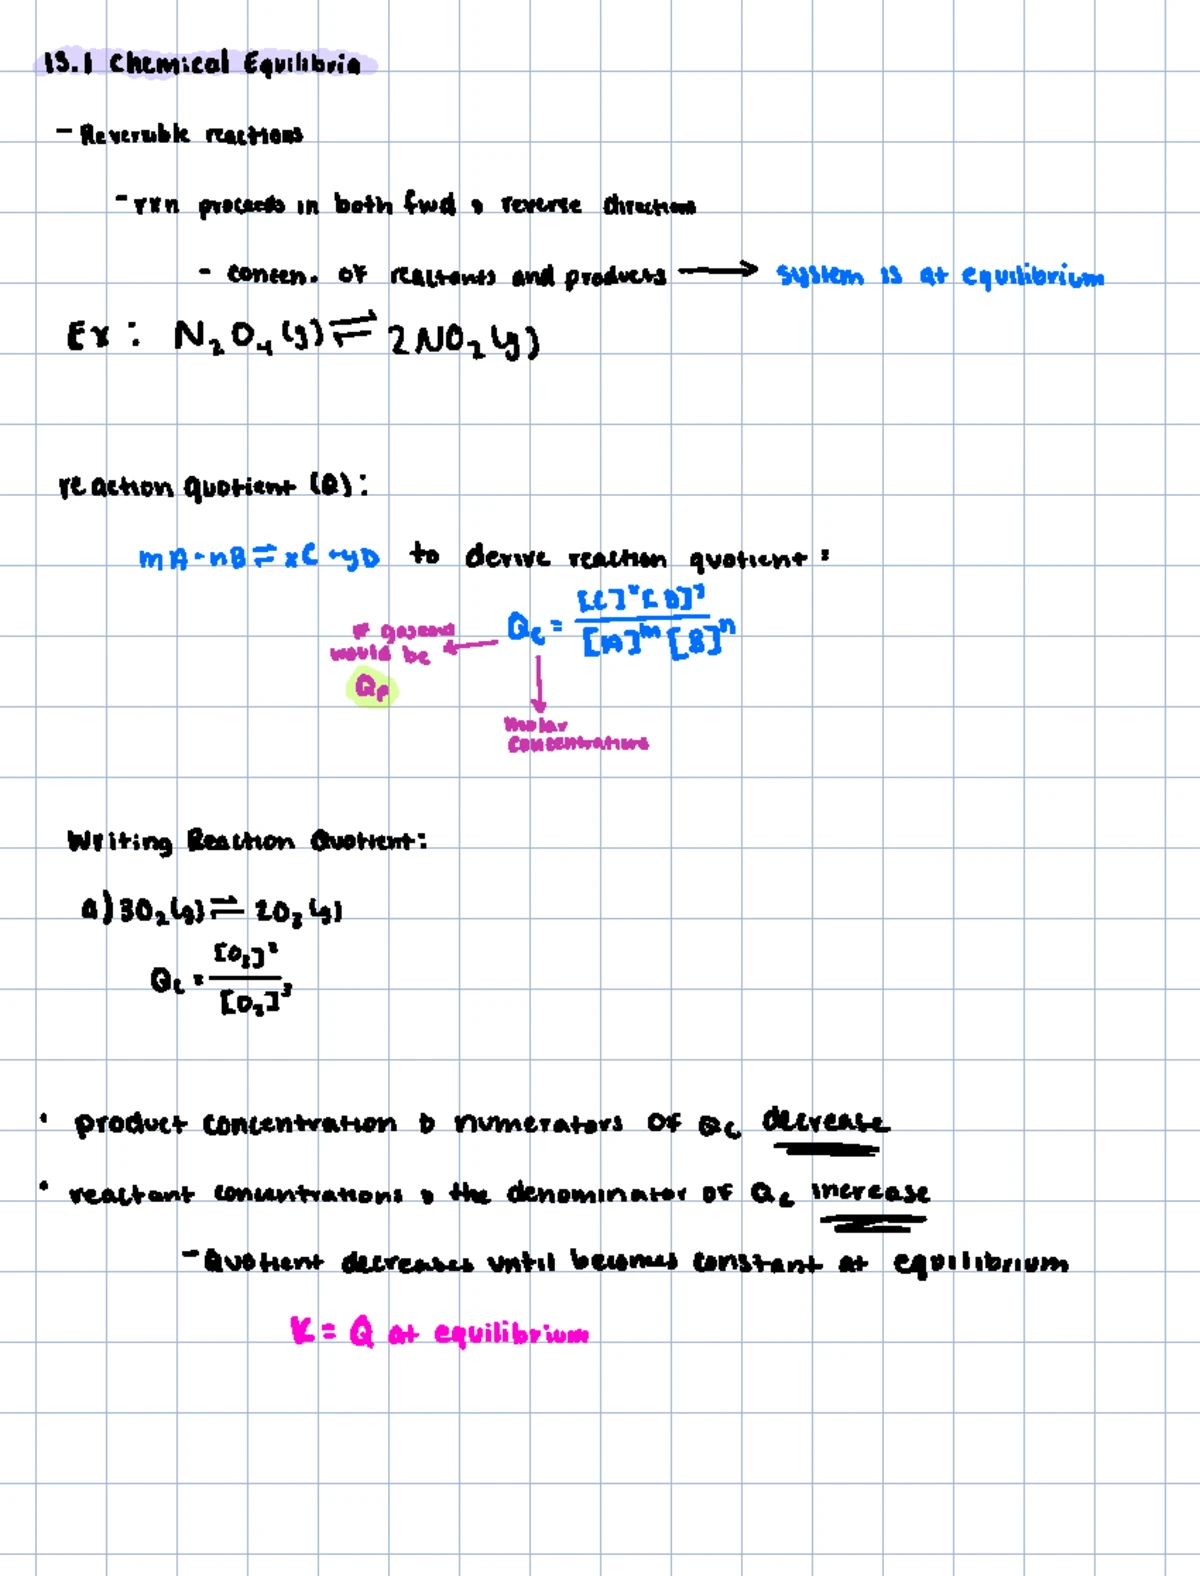 13.1 Chemical Equilibria
- Reversible reactions
- rxn proceeds in both fwd & reverse directions
- concen. of reactants and products → system is at equilibrium
Ex: N₂O₄(g) ⇌ 2NO₂(g)
reaction quotient (Q):
mA + nB ⇌ xC + yD to derive reaction quotient:
Qc = [C]ˣ[D]ʸ / [A]ᵐ[B]ⁿ
would be
Qp
molar
concentrations
Writing Reaction Quotient:
a) 3O₂(g) ⇌ 2O₃(g)
Qc = [O₃]² / [O₂]³
• product concentration & numerators of Qc decrease
• reactant concentrations & the denominator of Qc increase
- Quotient decreases until becomes constant at equilibrium
K = Q at equilibrium